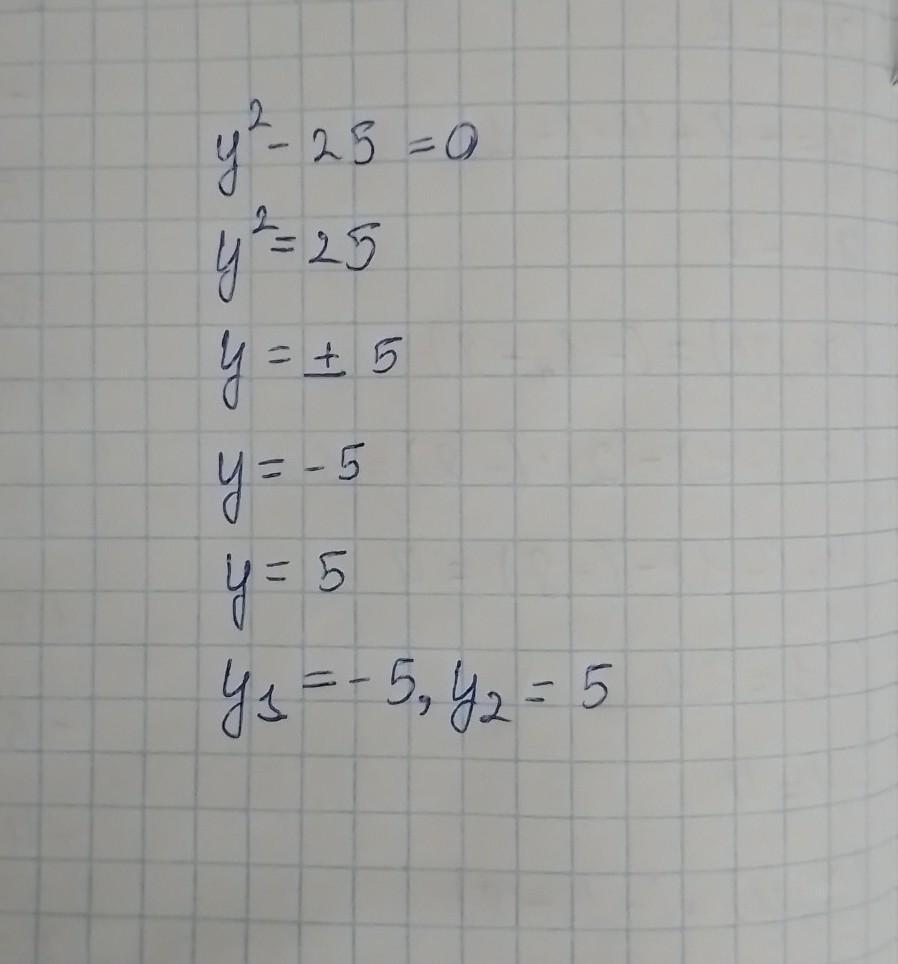 y² - 25 = 0
y² = 25
y = ± 5
y = - 5
y = 5
y₁ = - 5, y₂ = 5